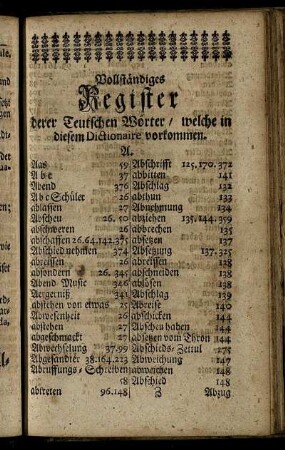 Vollständiges
Register
derer Teutschen Wörter/ welche in
diesem Dictionaire vorkommen.
A.
Aas 59
Abe 37
Abend 376
Abc Schüler 26
ablassen 27
Abscheu 26. 50
abschweren 26
abschaffen 26.64.142.375
Abschied nehmen 374
abreisen 26
absondern 26. 345
Abend Music 346
Aergerniß 341
abstehen von etwas 15
Abwesenheit 26
abstehen 27
abgeschmackt 27
Abwechselung 37.99
Abgesendter 38.164.213
Abruffungs-Schreiben
58
abtreten 96.148
Abschrifft 125.170.372
abbitten 141
Abschlag 132
abthun 133
Abnehmung 134
abziehen 135.144.359
abbrechen 135
absetzen 137
Absetzung 137.325
abreissen 128
abschneiden 138
ablösen 138
Abschlag 139
Abreise 140
abschicken 144
Abscheu haben 144
absetzen vom Thron 144
Abschieds-Zettul 275
Abweichung 147
abweichen 148
Abschied 148
Z Abzug